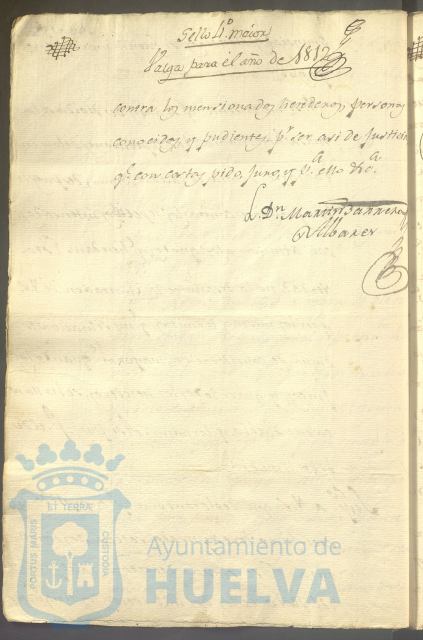 Sello 4º. maior
Valga para el año de 1812
contra los mensionados herederos, personas
conocidos, y pudientes, pr. ser asi de justicia
qe. con costas pido, juro, y pa. ello &ca.
L. Dn. Martin
PORTUS MARIS
ET TERRÆ
CUSTODIA
Ayuntamiento de
HUELVA